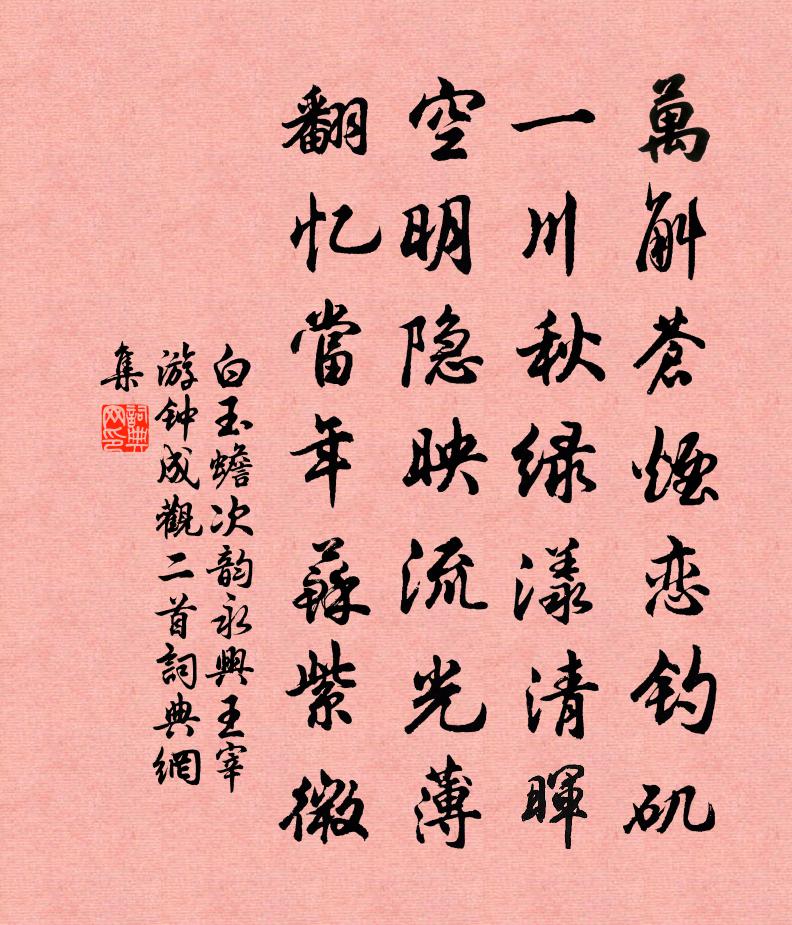 萬斛蒼煙恋钓矶
一川秋绿漾清暉
空明隐映流光薄
翻忆當年蘇紫微
白玉蟾次韵永興王宰
游钟成觀二首詞典網
集
詞典
网印